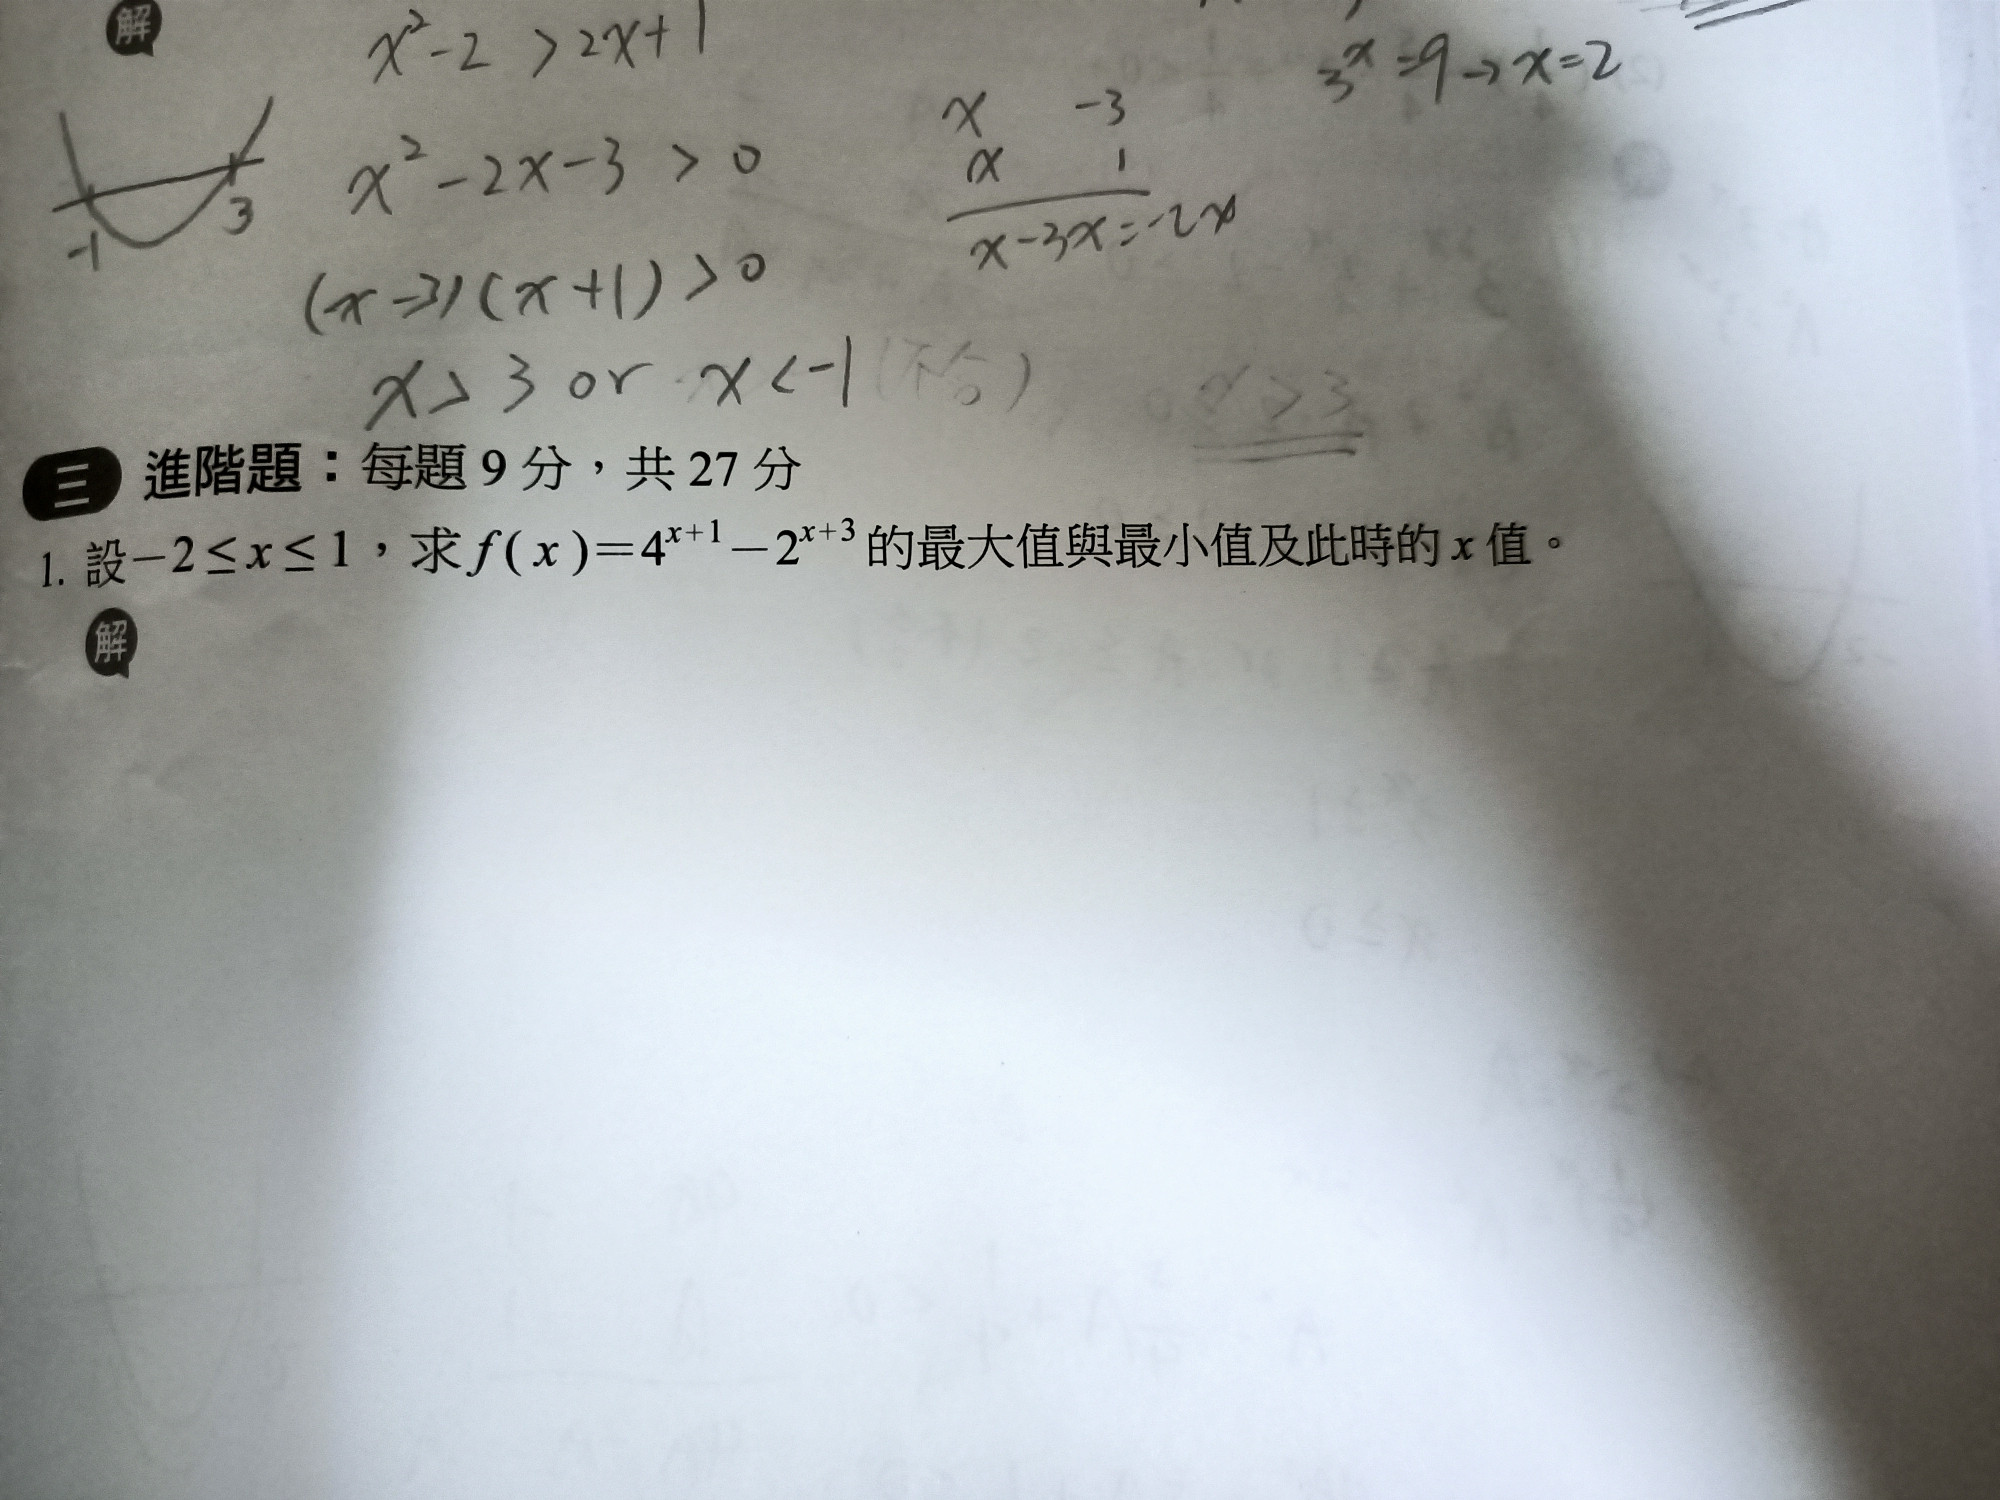 解
x²-2 > 2x+1
3ˣ=9→x=2
x -3
x²-2x-3 > 0
x 1
-1 3
x-3x=-2x
(x-3)(x+1)>0
x>3 or x<-1 (不合)
x>3
三 進階題：每題 9 分，共 27 分
1. 設－2≤x≤1，求 f( x )＝4ˣ⁺¹－2ˣ⁺³ 的最大值與最小值及此時的 x 值。
解